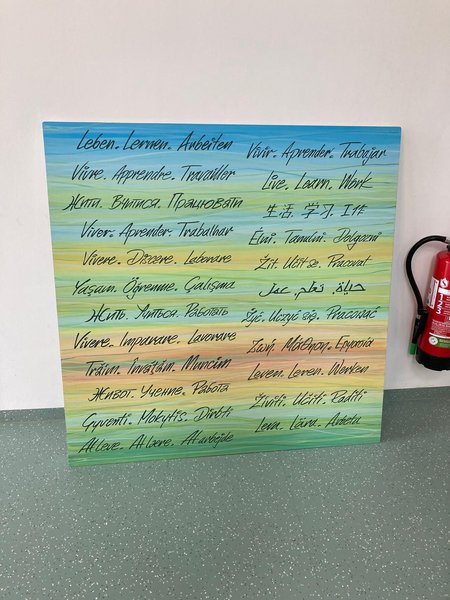 Leben. Lernen. Arbeiten
Vivre. Apprendre. Travailler
Жити. Вчитися. Працювати
Viver. Aprender. Trabalhar
Vivere. Discere. Laborare
Yaşam. Öğrenme. Çalışma
Жить. Учиться. Работать
Vivere. Imparare. Lavorare
Trăim. Învățăm. Muncim
Живот. Учение. Работа
Gyventi. Mokytis. Dirbti
At leve. At lære. At arbejde
Vivir. Aprender. Trabajar
Live. Learn. Work
生活. 学习. 工作
Élni. Tanulni. Dolgozni
Žít. Učit se. Pracovat
حياة. تعلم. عمل
Żyć. Uczyć się. Pracować
Ζωή. Μάθηση. Εργασία
Leven. Leren. Werken
Živiti. Učiti. Raditi
Leva. Lära. Arbeta